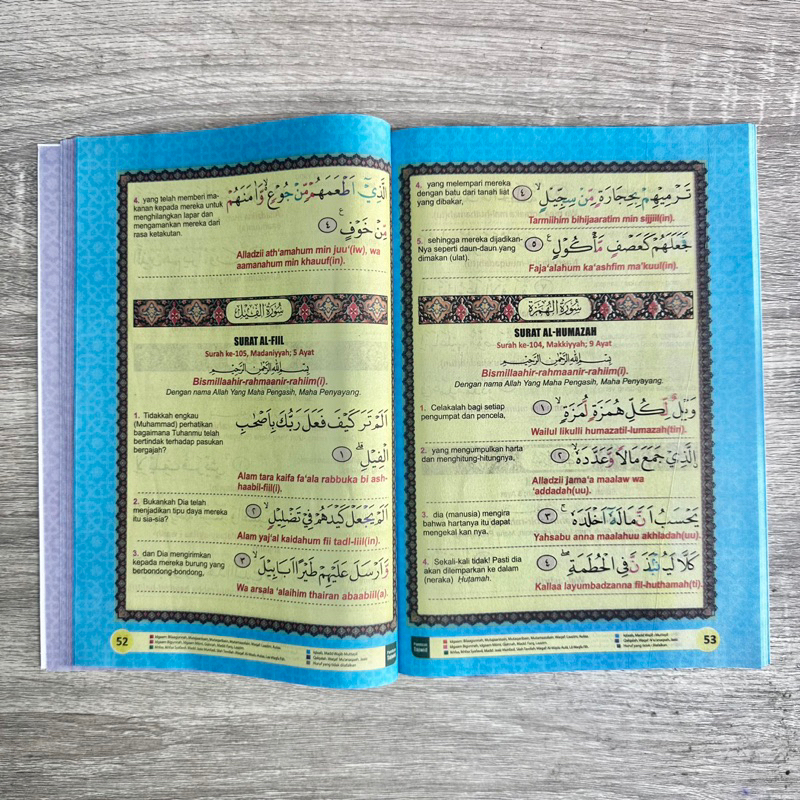 4. yang telah memberi ma-
kanan kepada mereka untuk
menghilangkan lapar dan
mengamankan mereka dari
rasa ketakutan.
الَّذِيْٓ اَطْعَمَهُمْ مِّنْ جُوْعٍ ەۙ وَّاٰمَنَهُمْ
مِّنْ خَوْفٍ ࣖ ٤
Alladzii ath'amahum min juu'(iw), wa
aamanahum min khauuf(in).
سُوْرَةُ الْفِيْلِ
SURAT AL-FIIL
Surah ke-105, Madaniyyah; 5 Ayat
بِسْمِ اللّٰهِ الرَّحْمٰنِ الرَّحِيْمِ
Bismillaahir-rahmaanir-rahiim(i).
Dengan nama Allah Yang Maha Pengasih, Maha Penyayang.
1. Tidakkah engkau
(Muhammad) perhatikan
bagaimana Tuhanmu telah
bertindak terhadap pasukan
bergajah?
اَلَمْ تَرَ كَيْفَ فَعَلَ رَبُّكَ بِاَصْحٰبِ
الْفِيْلِۗ ١
Alam tara kaifa fa'ala rabbuka bi ash-
haabil-fiil(i).
2. Bukankah Dia telah
menjadikan tipu daya mereka
itu sia-sia?
اَلَمْ يَجْعَلْ كَيْدَهُمْ فِيْ تَضْلِيْلٍۙ ٢
Alam yaj'al kaidahum fii tadl-liil(in).
3. dan Dia mengirimkan
kepada mereka burung yang
berbondong-bondong,
وَّاَرْسَلَ عَلَيْهِمْ طَيْرًا اَبَابِيْلَۙ ٣
Wa arsala 'alaihim thairan abaabiil(a).
52
4. yang melempari mereka
dengan batu dari tanah liat
yang dibakar,
تَرْمِيْهِمْ بِحِجَارَةٍ مِّنْ سِجِّيْلٍۙ ٤
Tarmiihim bihijaaratim min sijjiil(in).
5. sehingga mereka dijadikan-
Nya seperti daun-daun yang
dimakan (ulat).
فَجَعَلَهُمْ كَعَصْفٍ مَّأْكُوْلٍ ࣖ ٥
Faja'alahum ka'ashfim ma'kuul(in).
سُوْرَةُ الْهُمَزَةِ
SURAT AL-HUMAZAH
Surah ke-104, Makkiyyah; 9 Ayat
بِسْمِ اللّٰهِ الرَّحْمٰنِ الرَّحِيْمِ
Bismillaahir-rahmaanir-rahiim(i).
Dengan nama Allah Yang Maha Pengasih, Maha Penyayang.
1. Celakalah bagi setiap
pengumpat dan pencela,
وَيْلٌ لِّكُلِّ هُمَزَةٍ لُّمَزَةٍۙ ١
Wailul likulli humazatil-lumazah(tin).
2. yang mengumpulkan harta
dan menghitung-hitungnya,
الَّذِيْ جَمَعَ مَالًا وَّعَدَّدَهٗۙ ٢
Alladzii jama'a maalaw wa
'addadah(uu).
3. dia (manusia) mengira
bahwa hartanya itu dapat
mengekal kan nya.
يَحْسَبُ اَنَّ مَالَهٗٓ اَخْلَدَهٗۚ ٣
Yahsabu anna maalahuu akhladah(uu).
4. Sekali-kali tidak! Pasti dia
akan dilemparkan ke dalam
(neraka) Hutamah.
كَلَّا لَيُنْۢبَذَنَّ فِى الْحُطَمَةِۖ ٤
Kallaa layumbadzanna fil-huthamah(ti).
53